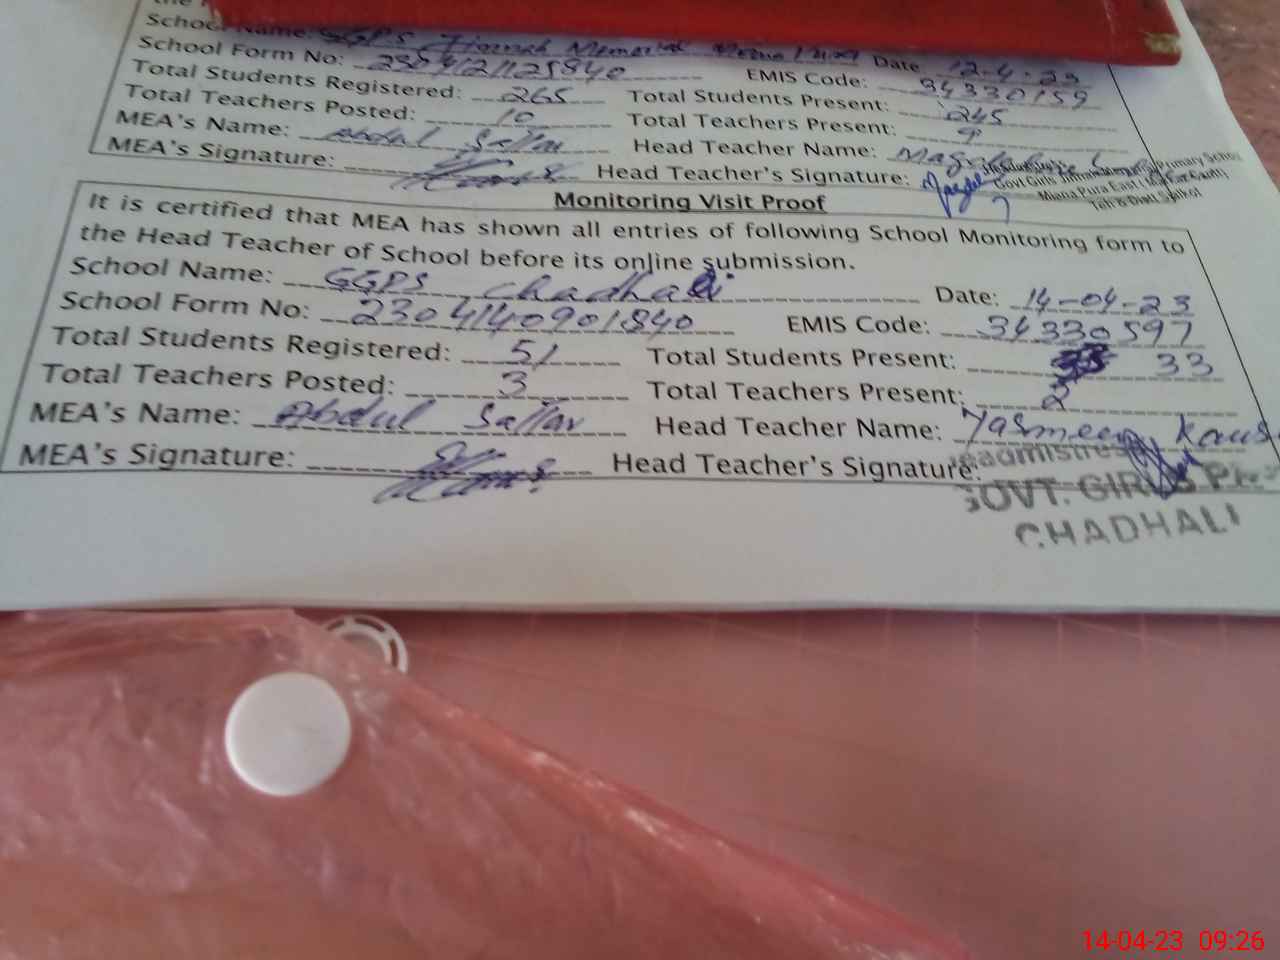 School Name: GGPS Jinnah Memorial Date 12-4-23
School Form No: 2304121125840 EMIS Code: 34330159
Total Students Registered: 265 Total Students Present: 245
Total Teachers Posted: 10 Total Teachers Present: 9
MEA's Name: Abdul Sattar Head Teacher Name:
MEA's Signature: Head Teacher's Signature:
Govt Girls Primary School
Miana Pura East
Teh & Distt Sialkot
Monitoring Visit Proof
It is certified that MEA has shown all entries of following School Monitoring form to
the Head Teacher of School before its online submission.
School Name: GGPS Chadhali Date: 14-04-23
School Form No: 2304140901840 EMIS Code: 34330597
Total Students Registered: 51 Total Students Present: 33
Total Teachers Posted: 3 Total Teachers Present: 2
MEA's Name: Abdul Sattar Head Teacher Name: Yasmeen Kaus
MEA's Signature: Head Teacher's Signature:
Headmistress
GOVT. GIRLS
CHADHALI
14-04-23 09:26